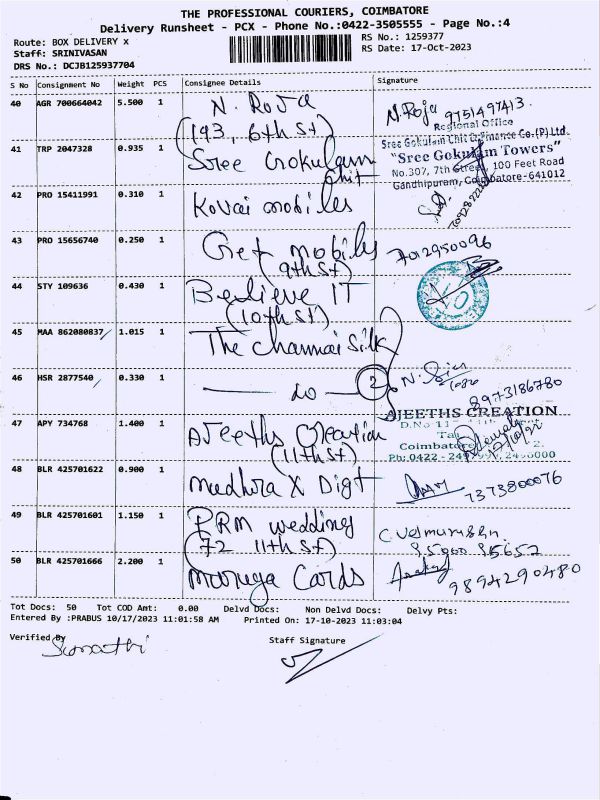 THE PROFESSIONAL COURIERS, COIMBATORE
Delivery Runsheet - PCX - Phone No.:0422-3505555 - Page No.:4
Route: BOX DELIVERY x
RS No.: 1259377
Staff: SRINIVASAN
RS Date: 17-Oct-2023
DRS No.: DCJB125937704
S No Consignment No Weight PCS Consignee Details Signature
40 AGR 700664042 5.500 1 N. Roja N.Roja 9751497413.
(193, 6th St)
Regional Office
41 TRP 2047328 0.935 1 Sree Gokulam Chit
Sree Gokulam Chit & Finance Co.(P) Ltd.
"Sree Gokulam Towers"
No.307, 7th Street, 100 Feet Road
Gandhipuram, Coimbatore-641012
42 PRO 15411991 0.310 1 Kovai mobiles
43 PRO 15656740 0.250 1 Get mobiles 7012950096
(9th St)
44 STY 109636 0.430 1 Believe IT
(10th St)
45 MAA 862080837 1.015 1 The Channai Silk
46 HSR 2877540 0.330 1 do 2
8973186780
47 APY 734768 1.400 1 AJeeths Creation
(11th St)
AJEETHS CREATION
D.No 11
Coimbatore
Ph: 0422 -
48 BLR 425701622 0.900 1 Mudhra X Digt 7373800076
49 BLR 425701601 1.150 1 PRM wedding
(72 11th St)
85900 85657
50 BLR 425701666 2.200 1 Maruga Cards 9894290480
Tot Docs: 50 Tot COD Amt: 0.00 Delvd Docs: Non Delvd Docs: Delvy Pts:
Entered By :PRABUS 10/17/2023 11:01:58 AM Printed On: 17-10-2023 11:03:04
Verified By
Sumathi
Staff Signature